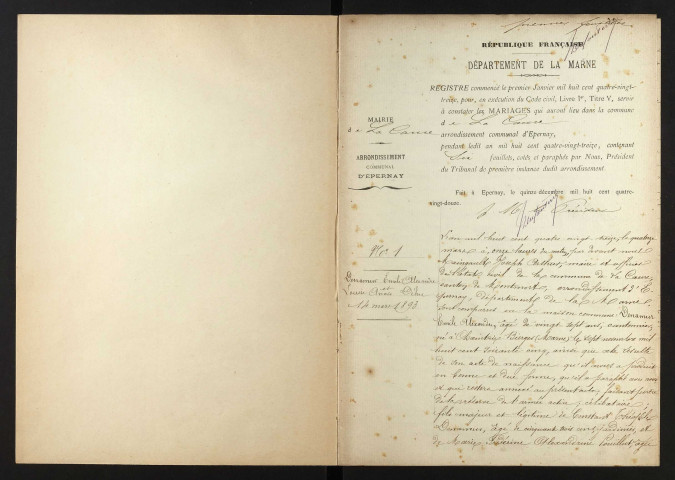 RÉPUBLIQUE FRANÇAISE
DÉPARTEMENT DE LA MARNE
REGISTRE commencé le premier Janvier mil huit cent quatre-vingt-
treize, pour, en exécution du Code civil, Livre Ier, Titre V, servir
à constater les MARIAGES qui auront lieu dans la commune
d e La Caure
arrondissement communal d'Epernay,
pendant ledit an mil huit cent quatre-vingt-treize, contenant
Six feuillets, cotés et paraphés par Nous, Président
du Tribunal de première instance dudit arrondissement.
Fait à Epernay, le quinze décembre mil huit cent quatre-
vingt-douze.
MAIRIE
d e La Caure
ARRONDISSEMENT
COMMUNAL
D'EPERNAY
No 1
Emile Alexandre
et
14 mars 1893
L'an mil huit cent quatre vingt treize, le quatorze
mars à onze heures du matin, par devant nous
Joseph Arthur, maire et officier
de l'état civil de la commune de La Caure
canton de Montmort, arrondissement d'E-
pernay, département de la Marne
sont comparus en la maison commune
Emile Alexandre, âgé de vingt sept ans,
né à (Marne) le sept novembre mil
huit cent soixante cinq, ainsi que cela résulte
de son acte de naissance
en bonne et due forme, qu'il a paraphé
et qui restera annexé au présent acte, faisant partie
de la réserve de l'armée active, célibataire,
fils majeur et légitime de Constant
âgé de cinquante trois ans, et
de Marie Alexandrine âgée